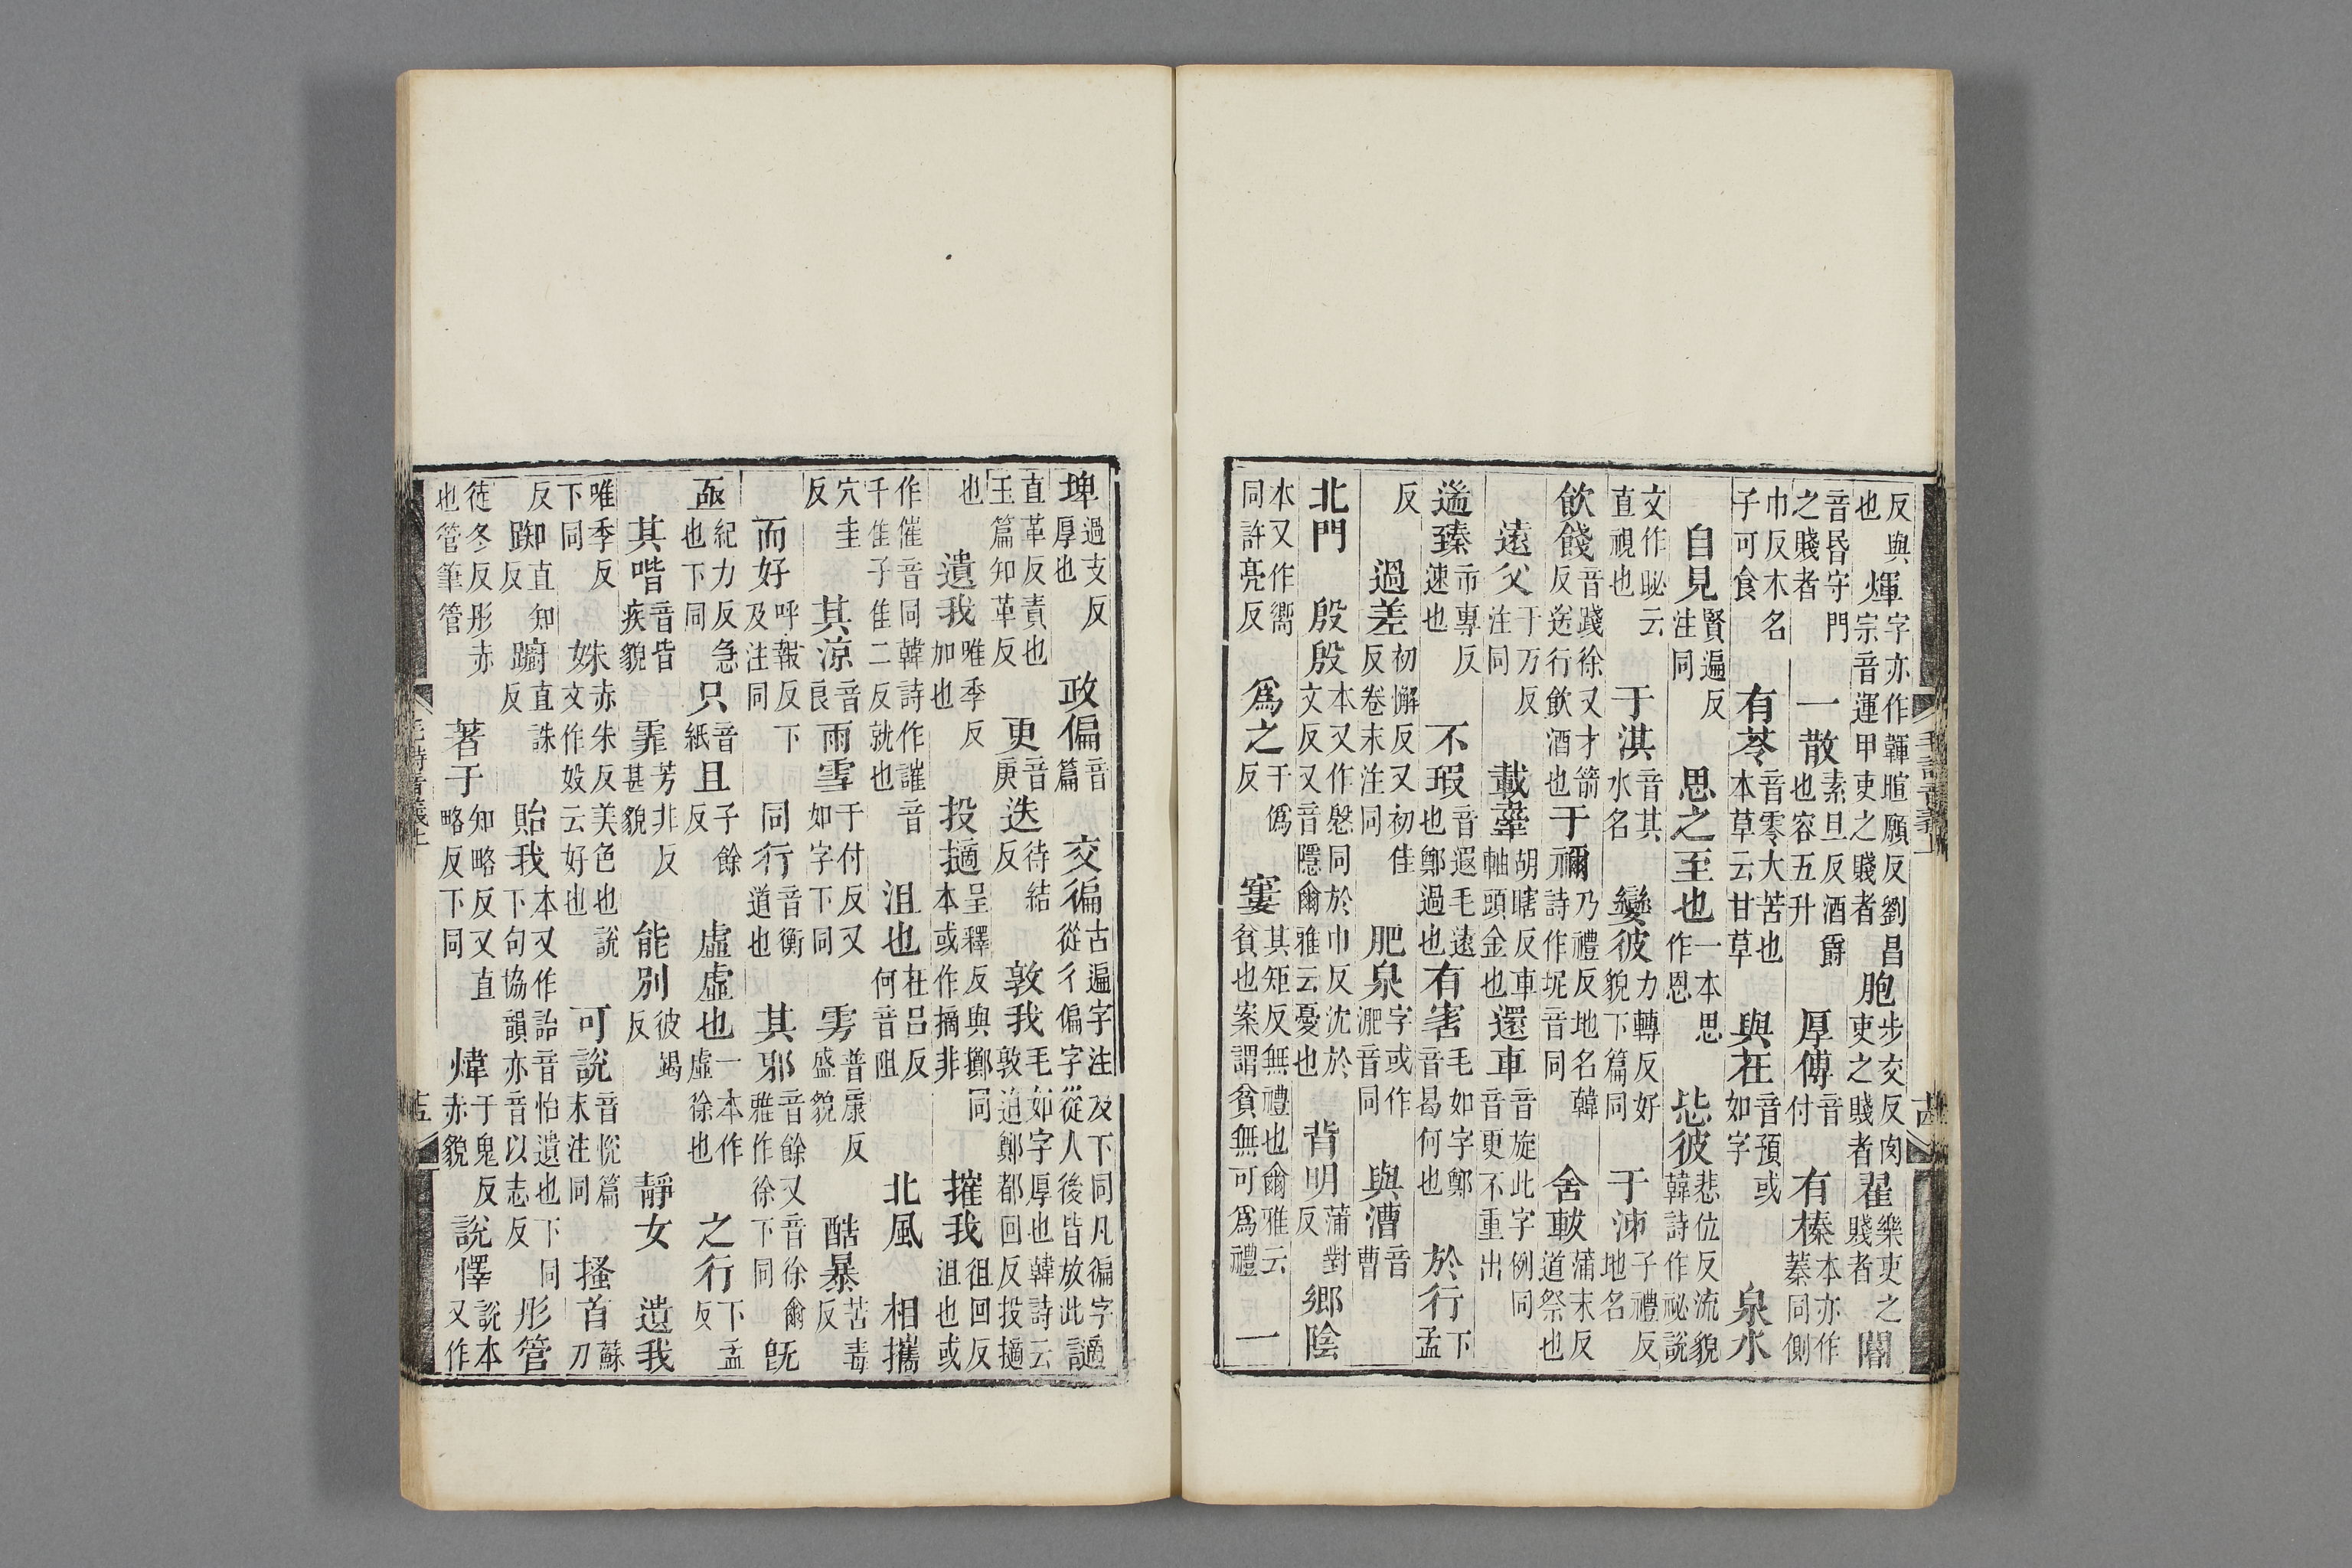 反與也煇字亦作韗暄願反劉昌宗音運甲吏之賤者胞步交反肉吏之賤者翟樂吏之賤者閽
音昏守門之賤者一散素旦反酒爵也容五升厚傅音付有榛本亦作蓁同側
巾反木名子可食有苓音零大苦也本草云甘草與在音預或如字泉水
自見賢遍反注同思之至也一本思作恩毖彼悲位反流貌韓詩作祕說
文作䀣云直視也于淇音其水名孌彼力轉反好貌下篇同于泲子禮反地名
飲餞音踐徐又才箭反送行飲酒也于禰乃禮反地名韓詩作坭音同舍軷蒲末反道祭也
遠父于万反注同載舝胡瞎反車軸頭金也還車音旋此字例同音更不重出
遄臻市專反速也不瑕音遐毛遠也鄭過也有害毛如字鄭音曷何也於行下孟
反過差初懈反又初佳反卷末注同肥泉字或作淝音同與漕音曹
北門殷殷本又作慇同於巾反沈於文反又音隱爾雅云憂也背明蒲對反鄉陰
本又作嚮同許亮反爲之于僞反窶其矩反無禮也爾雅云貧也案謂貧無可爲禮一
毛詩音義上
埤過支反厚也政偏音篇交徧古遍字注及下同凡徧字從彳偏字從人後皆放此讁
直革反責也玉篇知革反更音庚迭待結反敦我毛如字厚也韓詩云敦迫鄭都回反投擿
也遺我唯季反加也投擿呈釋反與擲同本或作摘非摧我徂回反沮也或
作催音同韓詩作讙音千隹子隹二反就也沮也在呂反何音阻北風相攜
穴圭反其涼音良雨雪于付反又如字下同雱普康反盛貌酷暴苦毒反
而好呼報反下及注同同行音衡道也其邪音餘又音徐爾雅作徐下同既
亟紀力反急也下同只音紙且子餘反虛虛也一本作虛徐也之行下孟反
其喈音皆疾貌霏芳非反甚貌能別彼竭反靜女遺我
唯季反下同姝赤朱反美色也說文作㚥云好也可說音悅篇末注同搔首蘇刀
反踟直知反躕直誅反貽我本又作詒音怡遺也下同下句協韻亦音以志反彤管
徒冬反彤赤也管筆管著于知略反又直略反下同煒于鬼反赤貌說懌說本又作
毛詩音義上